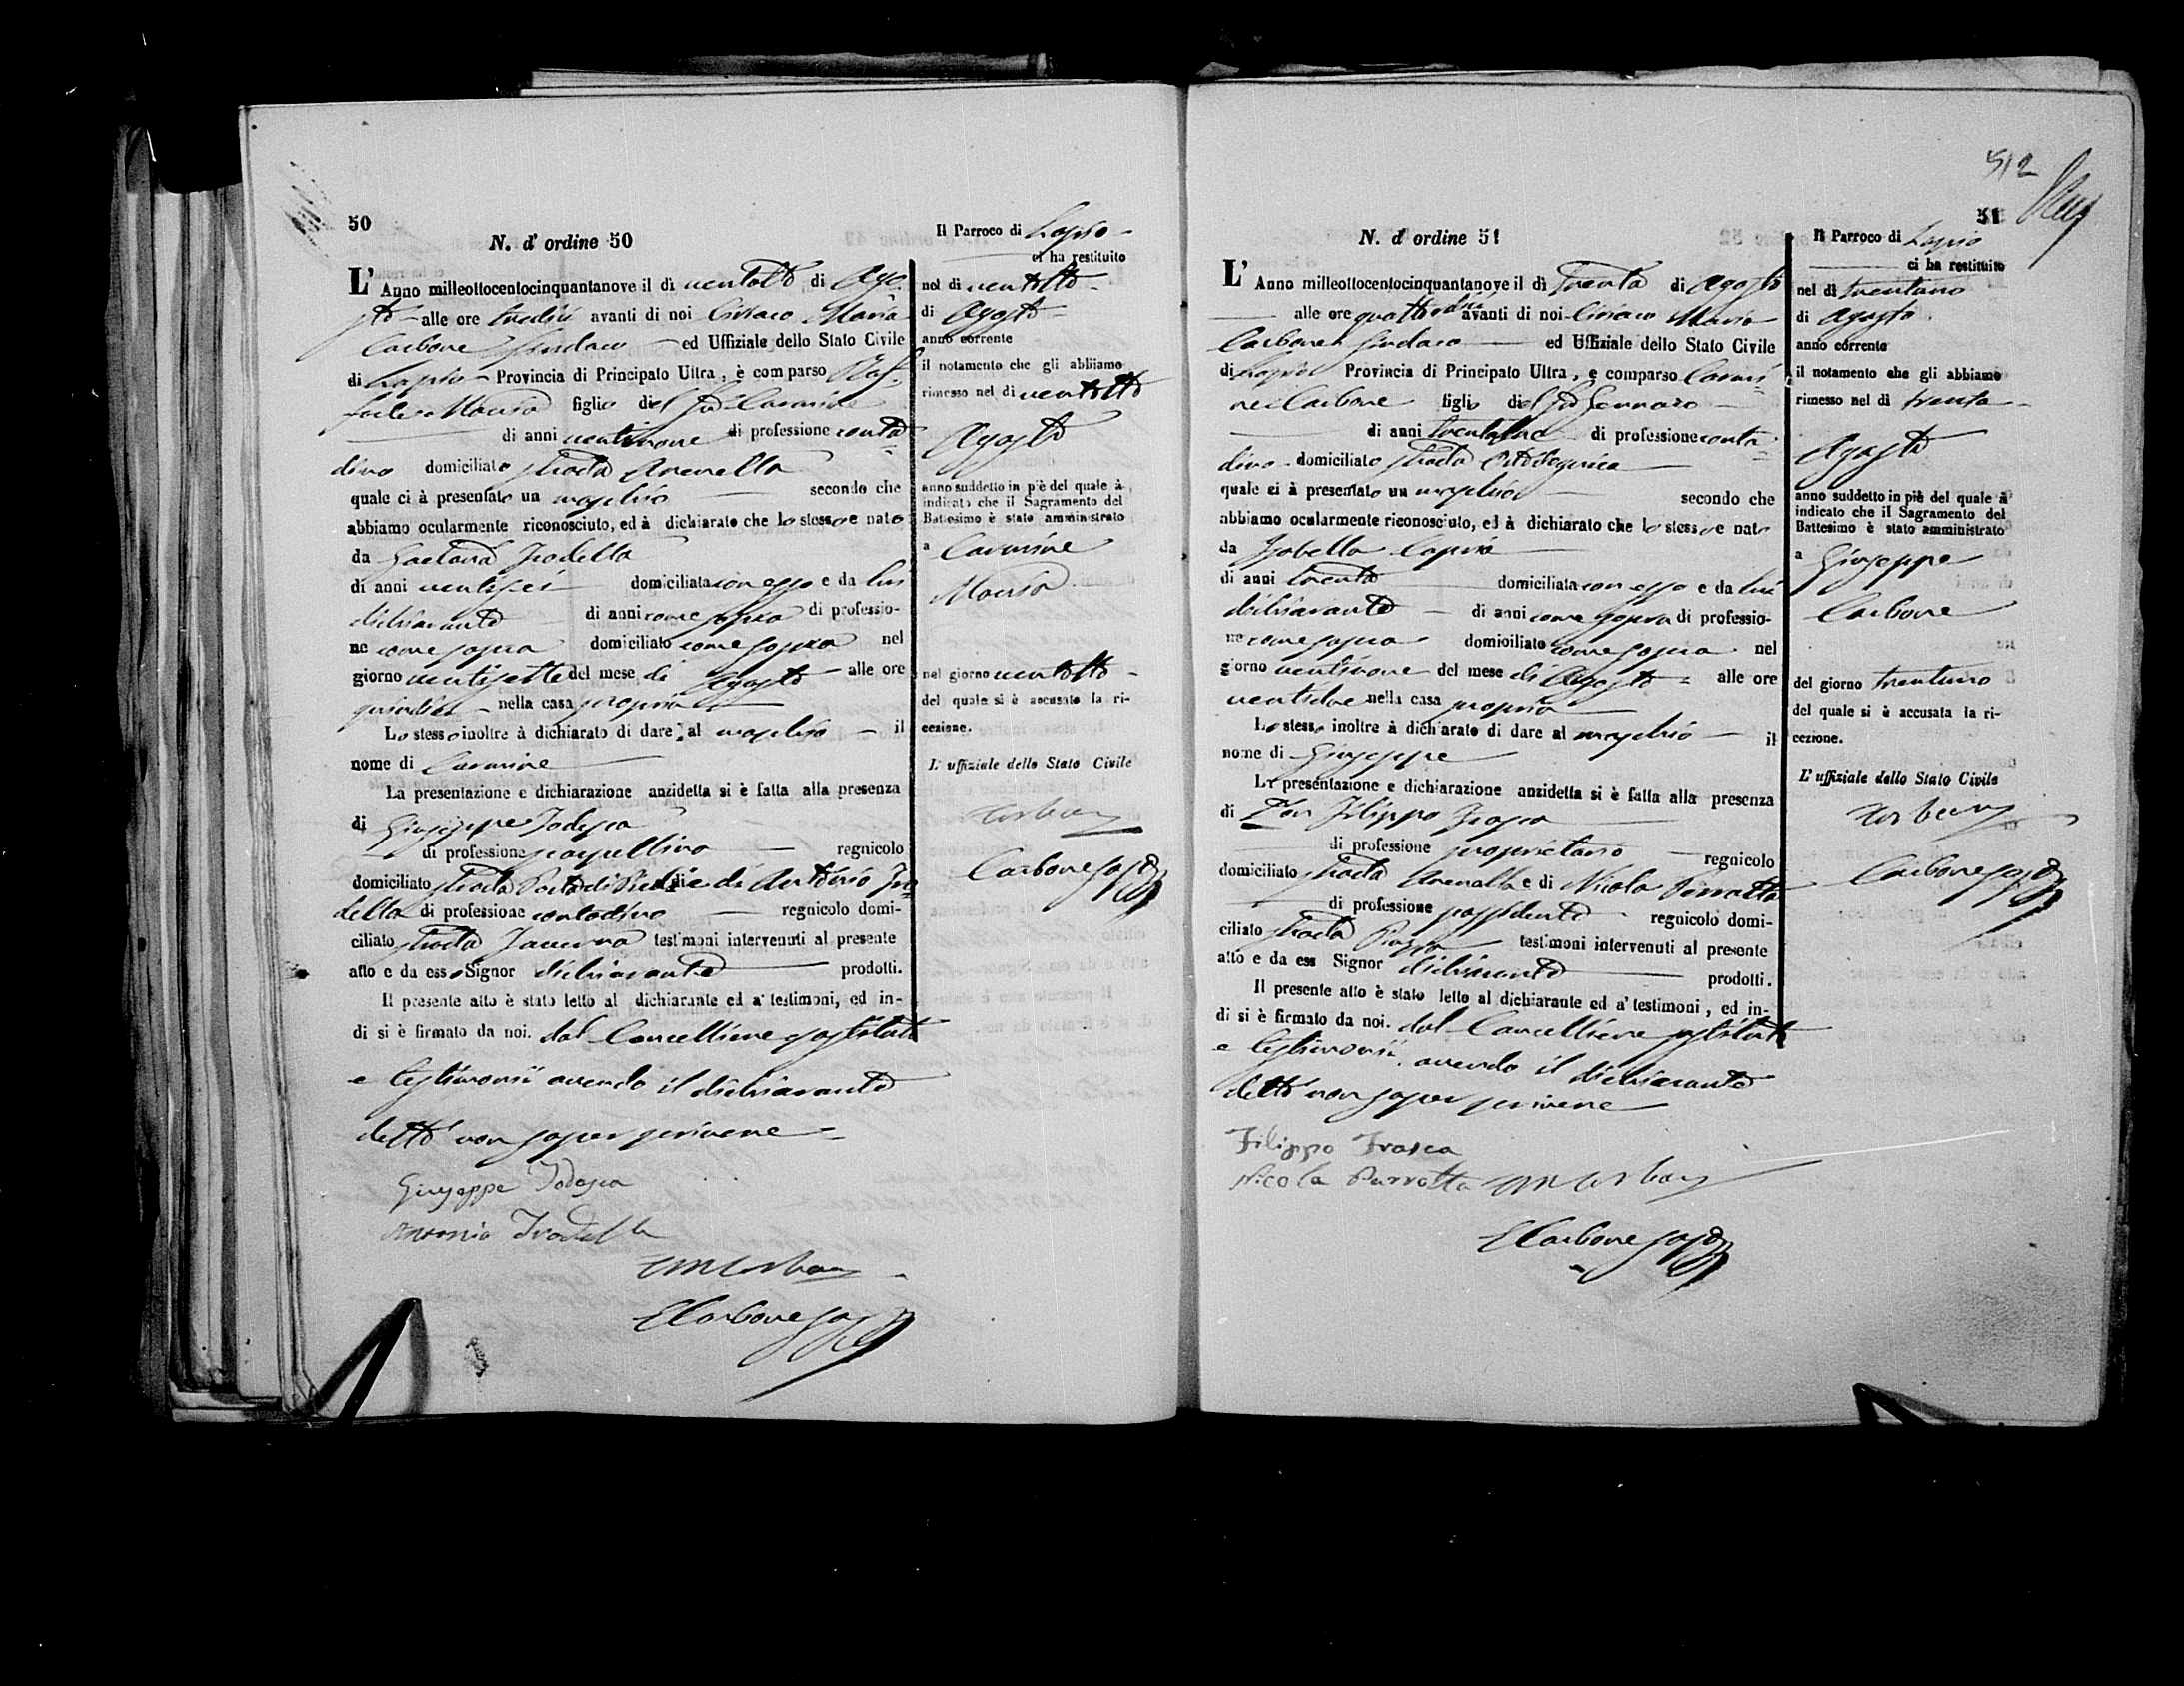 50
N. d' ordine 50
L' Anno milleottocentocinquantanove il dì ventotto di Ago-
sto alle ore tredici avanti di noi Ciriaco Maria
Carbone Sindaco ed Uffiziale dello Stato Civile
di Lapio Provincia di Principato Ultra, è comparso Raf-
faele figlio del fu Carmine
di anni ventinove di professione conta=
dino domiciliato strada Arenella
quale ci à presentato un maschio secondo che
abbiamo ocularmente riconosciuto, ed à dichiarato che lo stesso e nato
da Gaetana Trodella
di anni ventisei domiciliata con esso e da lui
dichiarante di anni come sopra di professio-
ne come sopra domiciliato come sopra nel
giorno ventisette del mese di Agosto alle ore
quindici nella casa propria
Lo stesso inoltre à dichiarato di dare al maschio il
nome di Carmine
La presentazione e dichiarazione anzidetta si è fatta alla presenza
di Giuseppe Todesca
di professione scarpellino regnicolo
domiciliato strada Porta di e di Antonio Tro=
della di professione contadino regnicolo domi-
ciliato strada Taverna testimoni intervenuti al presente
atto e da esso Signor dichiarante prodotti.
Il presente atto è stato letto al dichiarante ed a' testimoni, ed in-
di si è firmato da noi. dal Cancelliere sostituto
e testimonii avendo il dichiarante
detto non saper scrivere
Giuseppe Todesca
Antonio Trodella
ECarbone
Il Parroco di Lapio
ci ha restituito
nel di ventotto
di Agosto
anno corrente
il notamento che gli abbiamo
rimesso nel di ventotto
Agosto
anno suddetto in piè del quale à
indicato che il Sagramento del
Battesimo è stato amministrato
a Carmine
nel giorno ventotto
del quale si è accusato la ri-
cezione.
L' uffiziale dello Stato Civile
Carbone
512
51
N. d' ordine 51
L' Anno milleottocentocinquantanove il dì trenta di Agosto
alle ore quattordici avanti di noi Ciriaco Maria
Carbone Sindaco ed Uffiziale dello Stato Civile
di Lapio Provincia di Principato Ultra, e comparso Carmi-
ne Carbone figlio del fu Gennaro
di anni di professione conta=
dino domiciliato strada
quale ci à presentato un maschio secondo che
abbiamo ocularmente riconosciuto, ed à dichiarato che lo stesso e nato
da Isabella Caprio
di anni trenta domiciliata con esso e da lui
dichiarante di anni come sopra di professio-
ne come sopra domiciliato come sopra nel
giorno ventinove del mese di Agosto alle ore
ventidue nella casa propria
Lo stesso inoltre à dichiarato di dare al maschio il
nome di Giuseppe
La presentazione e dichiarazione anzidetta si è fatta alla presenza
di Don Filippo Frasca
di professione proprietario regnicolo
domiciliato strada Arenella e di Nicola Parrotta
di professione possidente regnicolo domi-
ciliato strada Piazza testimoni intervenuti al presente
atto e da ess Signor dichiarante prodotti.
Il presente atto è stato letto al dichiarante ed a' testimoni, ed in-
di si è firmato da noi. dal Cancelliere sostituto
e testimonii avendo il dichiarante
detto non saper scrivere
Filippo Frasca
Nicola Parrotta
ECarbone
Il Parroco di Lapio
ci ha restituito
nel di trentuno
di Agosto
anno corrente
il notamento che gli abbiamo
rimesso nel di trenta
Agosto
anno suddetto in piè del quale à
indicato che il Sagramento del
Battesimo è stato amministrato
a Giuseppe
Carbone
del giorno trentuno
del quale si è accusata la ri-
cezione.
L' uffiziale dello Stato Civile
Carbone